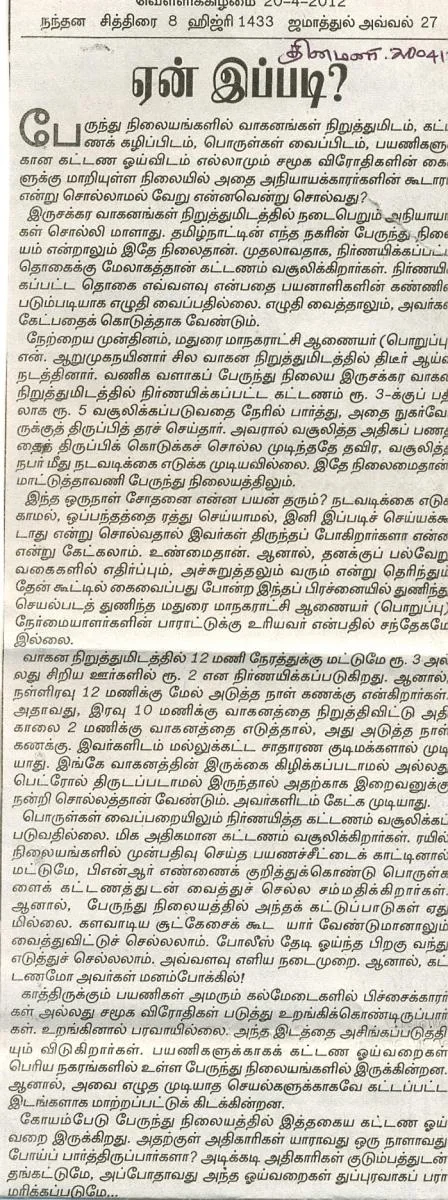 வெள்ளிக்கிழமை 20-4-2012
நந்தன சித்திரை 8 ஹிஜ்ரி 1433 ஜமாத்துல் அவ்வல் 27
தினமணி.
ஏன் இப்படி?
பேருந்து நிலையங்களில் வாகனங்கள் நிறுத்துமிடம்,
ணக் கழிப்பிடம், பொருள்கள் வைப்பிடம்,
கான கட்டண ஓய்விடம் எல்லாமும் சமூக விரோதிகளின்
ளுக்கு மாறியுள்ள நிலையில் அதை அநியாயக்காரர்களின்
என்று சொல்லாமல் வேறு என்னவென்று சொல்வது?
இருசக்கர வாகனங்கள் நிறுத்துமிடத்தில் நடைபெறும்
கள் சொல்லி மாளாது. தமிழ்நாட்டின் எந்த நகரின் பேருந்து
யம் என்றாலும் இதே நிலைதான். முதலாவதாக,
தொகைக்கு மேலாகத்தான் கட்டணம் வசூலிக்கிறார்கள்.
கப்பட்ட தொகை எவ்வளவு என்பதை பயனாளிகளின்
படும்படியாக எழுதி வைப்பதில்லை. எழுதி வைத்தாலும்,
கேட்பதைக் கொடுத்தாக வேண்டும்.
நேற்றைய முன்தினம், மதுரை மாநகராட்சி ஆணையர் (பொறுப்பு
என். ஆறுமுகநயினார் சில வாகன நிறுத்துமிடத்தில் திடீர்
நடத்தினார். வணிக வளாகப் பேருந்து நிலைய இருசக்கர
நிறுத்துமிடத்தில் நிர்ணயிக்கப்பட்ட கட்டணம் ரூ. 3-க்குப் பதி
லாக ரூ. 5 வசூலிக்கப்படுவதை நேரில் பார்த்து, அதை நுகர்வோ
ருக்குத் திருப்பித் தரச் செய்தார். அவரால் வசூலித்த அதிகப்
தைத் திருப்பிக் கொடுக்கச் சொல்ல முடிந்ததே தவிர,
நபர் மீது நடவடிக்கை எடுக்க முடியவில்லை. இதே நிலைமைதான்
மாட்டுத்தாவணி பேருந்து நிலையத்திலும்.
இந்த ஒருநாள் சோதனை என்ன பயன் தரும்? நடவடிக்கை எடுக்
காமல், ஒப்பந்தத்தை ரத்து செய்யாமல், இனி இப்படிச் செய்யக்கூ
டாது என்று சொல்வதால் இவர்கள் திருந்தப் போகிறார்களா என்ன
என்று கேட்கலாம். உண்மைதான். ஆனால், தனக்குப் பல்வேறு
வகைகளில் எதிர்ப்பும், அச்சுறுத்தலும் வரும் என்று தெரிந்தும்
தேன் கூட்டில் கைவைப்பது போன்ற இந்தப் பிரச்னையில் துணிந்து
செயல்படத் துணிந்த மதுரை மாநகராட்சி ஆணையர் (பொறுப்பு)
நேர்மையாளர்களின் பாராட்டுக்கு உரியவர் என்பதில் சந்தேகமே
இல்லை.
வாகன நிறுத்துமிடத்தில் 12 மணி நேரத்துக்கு மட்டுமே ரூ. 3 அல்
லது சிறிய ஊர்களில் ரூ. 2 என நிர்ணயிக்கப்படுகிறது. ஆனால்,
நள்ளிரவு 12 மணிக்கு மேல் அடுத்த நாள் கணக்கு என்கிறார்கள்.
அதாவது, இரவு 10 மணிக்கு வாகனத்தை நிறுத்திவிட்டு அதி
காலை 2 மணிக்கு வாகனத்தை எடுத்தால், அது அடுத்த நாள்
கணக்கு. இவர்களிடம் மல்லுக்கட்ட சாதாரண குடிமக்களால் முடி
யாது. இங்கே வாகனத்தின் இருக்கை கிழிக்கப்படாமல் அல்லது
பெட்ரோல் திருடப்படாமல் இருந்தால் அதற்காக இறைவனுக்கு
நன்றி சொல்லத்தான் வேண்டும். அவர்களிடம் கேட்க முடியாது.
பொருள்கள் வைப்பறையிலும் நிர்ணயித்த கட்டணம் வசூலிக்கப்
படுவதில்லை. மிக அதிகமான கட்டணம் வசூலிக்கிறார்கள். ரயில்
நிலையங்களில் முன்பதிவு செய்த பயணச்சீட்டைக் காட்டினால்
மட்டுமே, பிஎன்ஆர் எண்ணைக் குறித்துக்கொண்டு பொருள்க
ளைக் கட்டணத்துடன் வைத்துச் செல்ல சம்மதிக்கிறார்கள்.
ஆனால், பேருந்து நிலையத்தில் அந்தக் கட்டுப்பாடுகள் ஏது
மில்லை. களவாடிய சூட்கேசைக் கூட யார் வேண்டுமானாலும்
வைத்துவிட்டுச் செல்லலாம். போலீஸ் தேடி ஓய்ந்த பிறகு வந்து
எடுத்துச் செல்லலாம். அவ்வளவு எளிய நடைமுறை. ஆனால், கட்
டணமோ அவர்கள் மனம்போக்கில்!
காத்திருக்கும் பயணிகள் அமரும் கல்மேடைகளில் பிச்சைக்காரர்
கள் அல்லது சமூக விரோதிகள் படுத்து உறங்கிக்கொண்டிருப்பார்
கள். உறங்கினால் பரவாயில்லை. அந்த இடத்தை அசிங்கப்படுத்தி
யும் விடுகிறார்கள். பயணிகளுக்காகக் கட்டண ஓய்வறைகள்
பெரிய நகரங்களில் உள்ள பேருந்து நிலையங்களில் இருக்கின்றன.
ஆனால், அவை எழுத முடியாத செயல்களுக்காகவே கட்டப்பட்ட
இடங்களாக மாற்றப்பட்டுக் கிடக்கின்றன.
கோயம்பேடு பேருந்து நிலையத்தில் இத்தகைய கட்டண ஓய்
வறை இருக்கிறது. அதற்குள் அதிகாரிகள் யாராவது ஒரு நாளாவது
போய்ப் பார்த்திருப்பார்களா? அடிக்கடி அதிகாரிகள் குடும்பத்துடன்
தங்கட்டுமே, அப்போதாவது அந்த ஓய்வறைகள் துப்புரவாகப் பரா
மரிக்கப்படுமே...